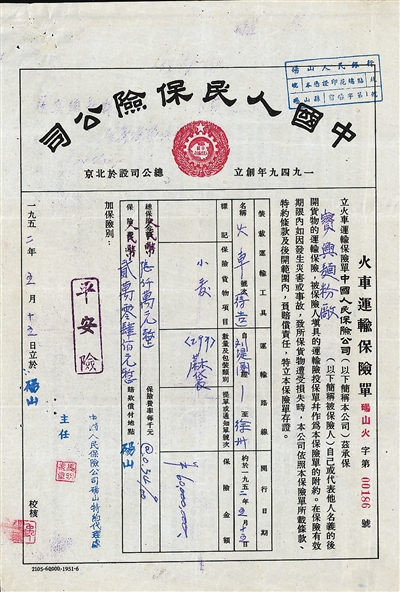 中國人民保險公司
一九四九年創立
總公司設於北京
碭山人民銀行
火車運輸保險單
碭山火 字第 00186 號
立火車運輸保險單中國人民保險公司(以下簡稱本公司)茲承保
寶興麵粉廠(以下簡稱被保險人)自己或代表他人名義的後
開貨物的運輸保險,被保險人填具的運輸險投保單幷作爲本保險單的附約。在保險有效
期限內如因發生災害或事故,致所保貨物遭受損失時,本公司依照本保險單所載條款、
特約條款及後開範圍內,負賠償責任,特立本保險單存證。
裝載運輸工具
名稱 火車
號次 待造
運輸路線
自
至 徐州
開行日期
約於一九五二年五月十五日
標記
保險貨物項目
小麥
數量及包裝種類
提單或通知單號次
保險金額
¥60,000,000.
總保險金額 人民幣陸仟萬元整
保險費率每千元
@0.34
保險費 人民幣貳萬零肆佰元整
賠款償付地點 碭山
加保險別:
平安險
一九五二年五月十三日立於碭山
中國人民保險公司碭山特約代理處
主任
校核
2105-60000-1951-6